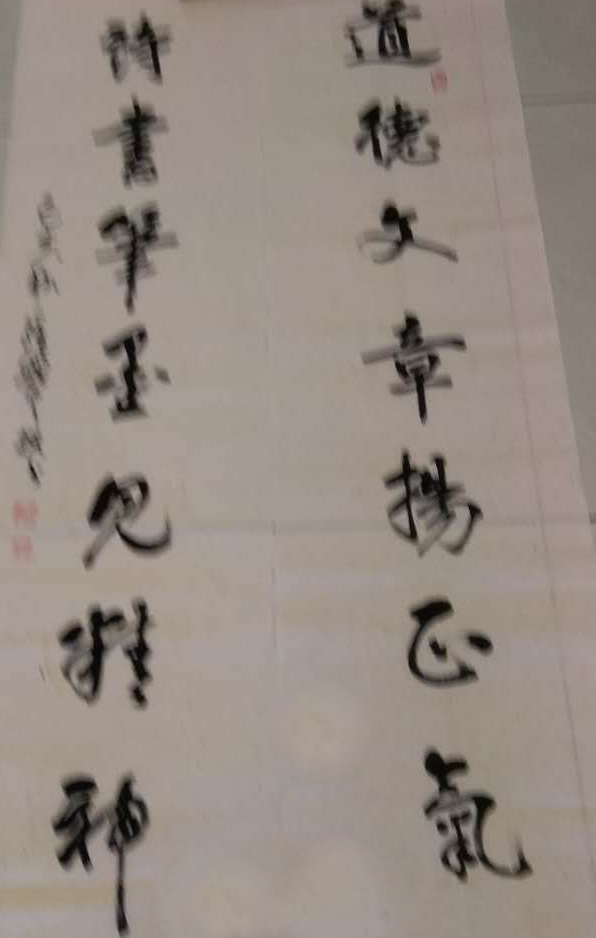 道德文章揚正氣
詩書筆墨見精神